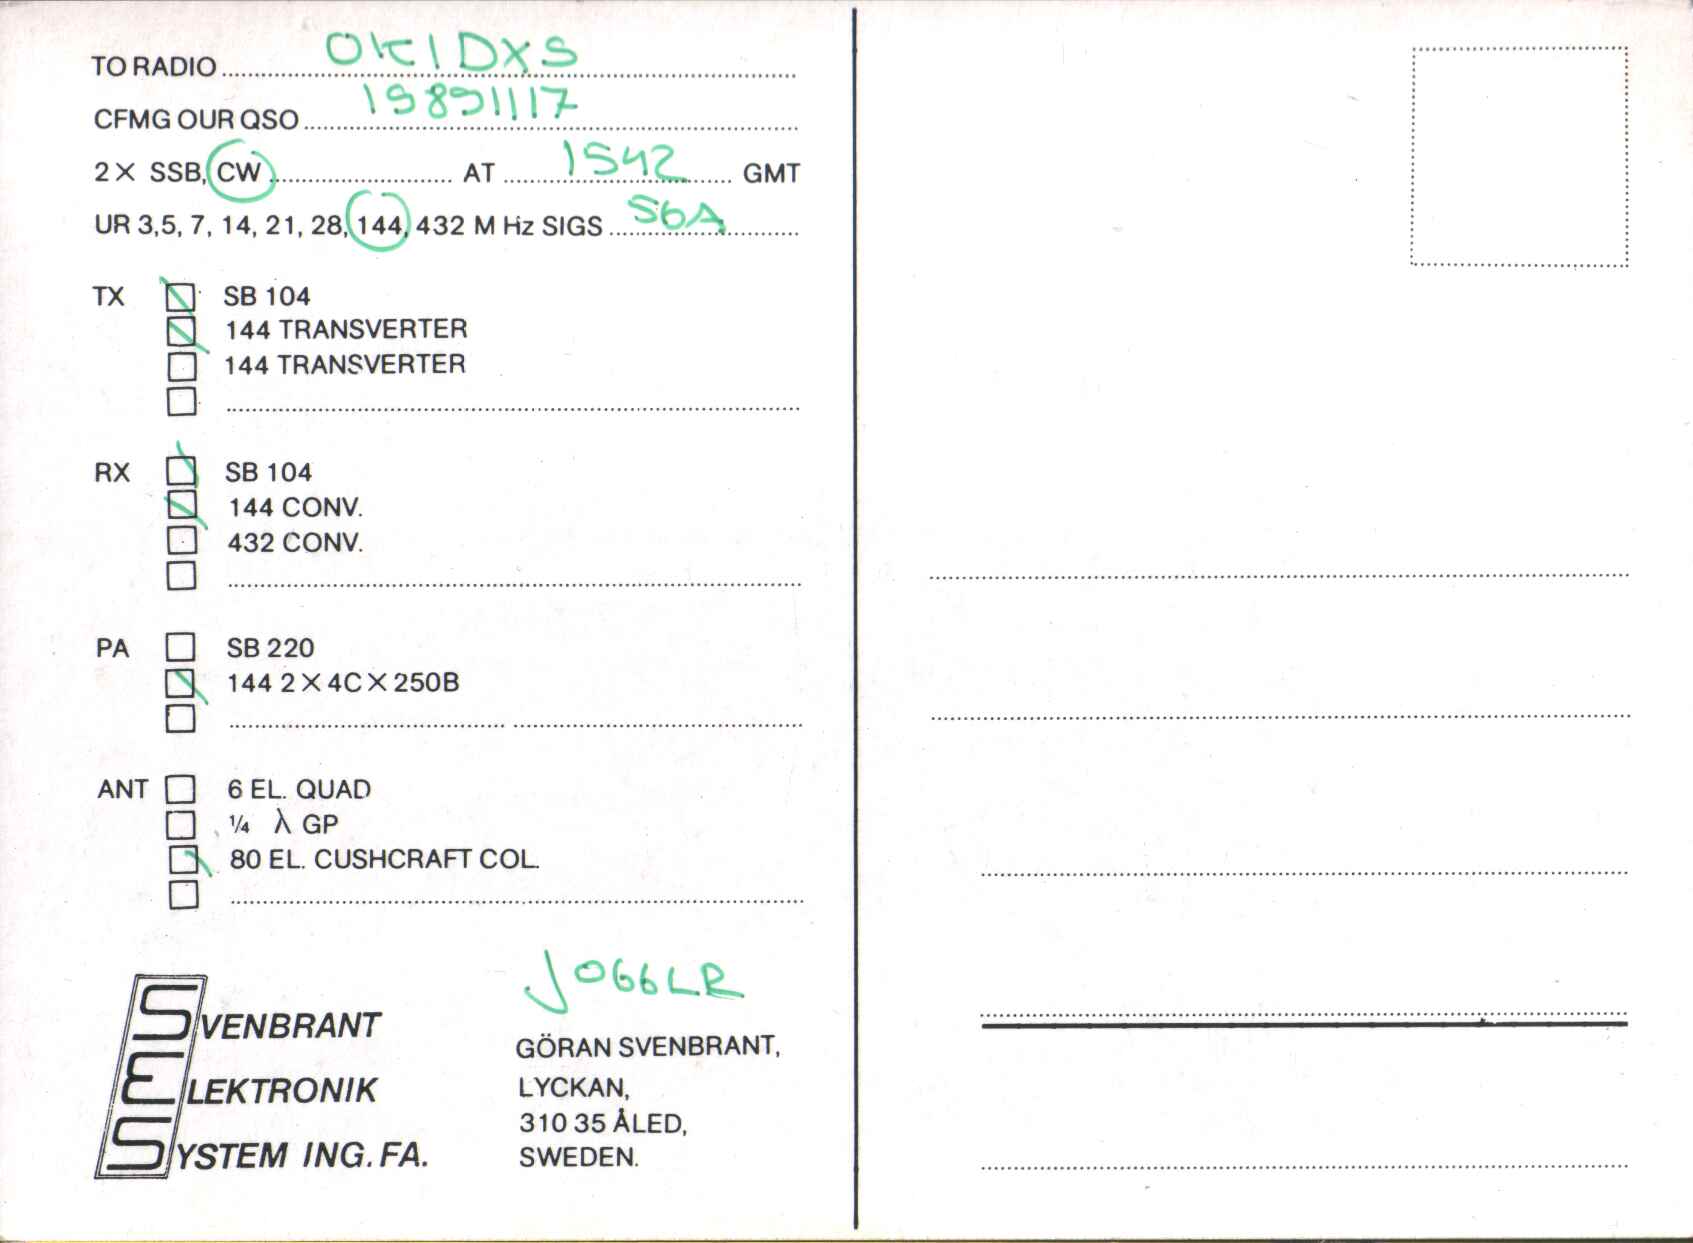 TO RADIO OK1DXS
CFMG OUR QSO 19891117
2 X SSB, CW AT 1542 GMT
UR 3,5, 7, 14, 21, 28, 144, 432 M Hz SIGS 56A
TX SB 104
144 TRANSVERTER
144 TRANSVERTER
RX SB 104
144 CONV.
432 CONV.
PA SB 220
144 2 X 4C X 250B
ANT 6 EL. QUAD
¼ λ GP
80 EL. CUSHCRAFT COL.
JO66LR
SVENBRANT
ELEKTRONIK
SYSTEM ING. FA.
GÖRAN SVENBRANT,
LYCKAN,
310 35 ÅLED,
SWEDEN.